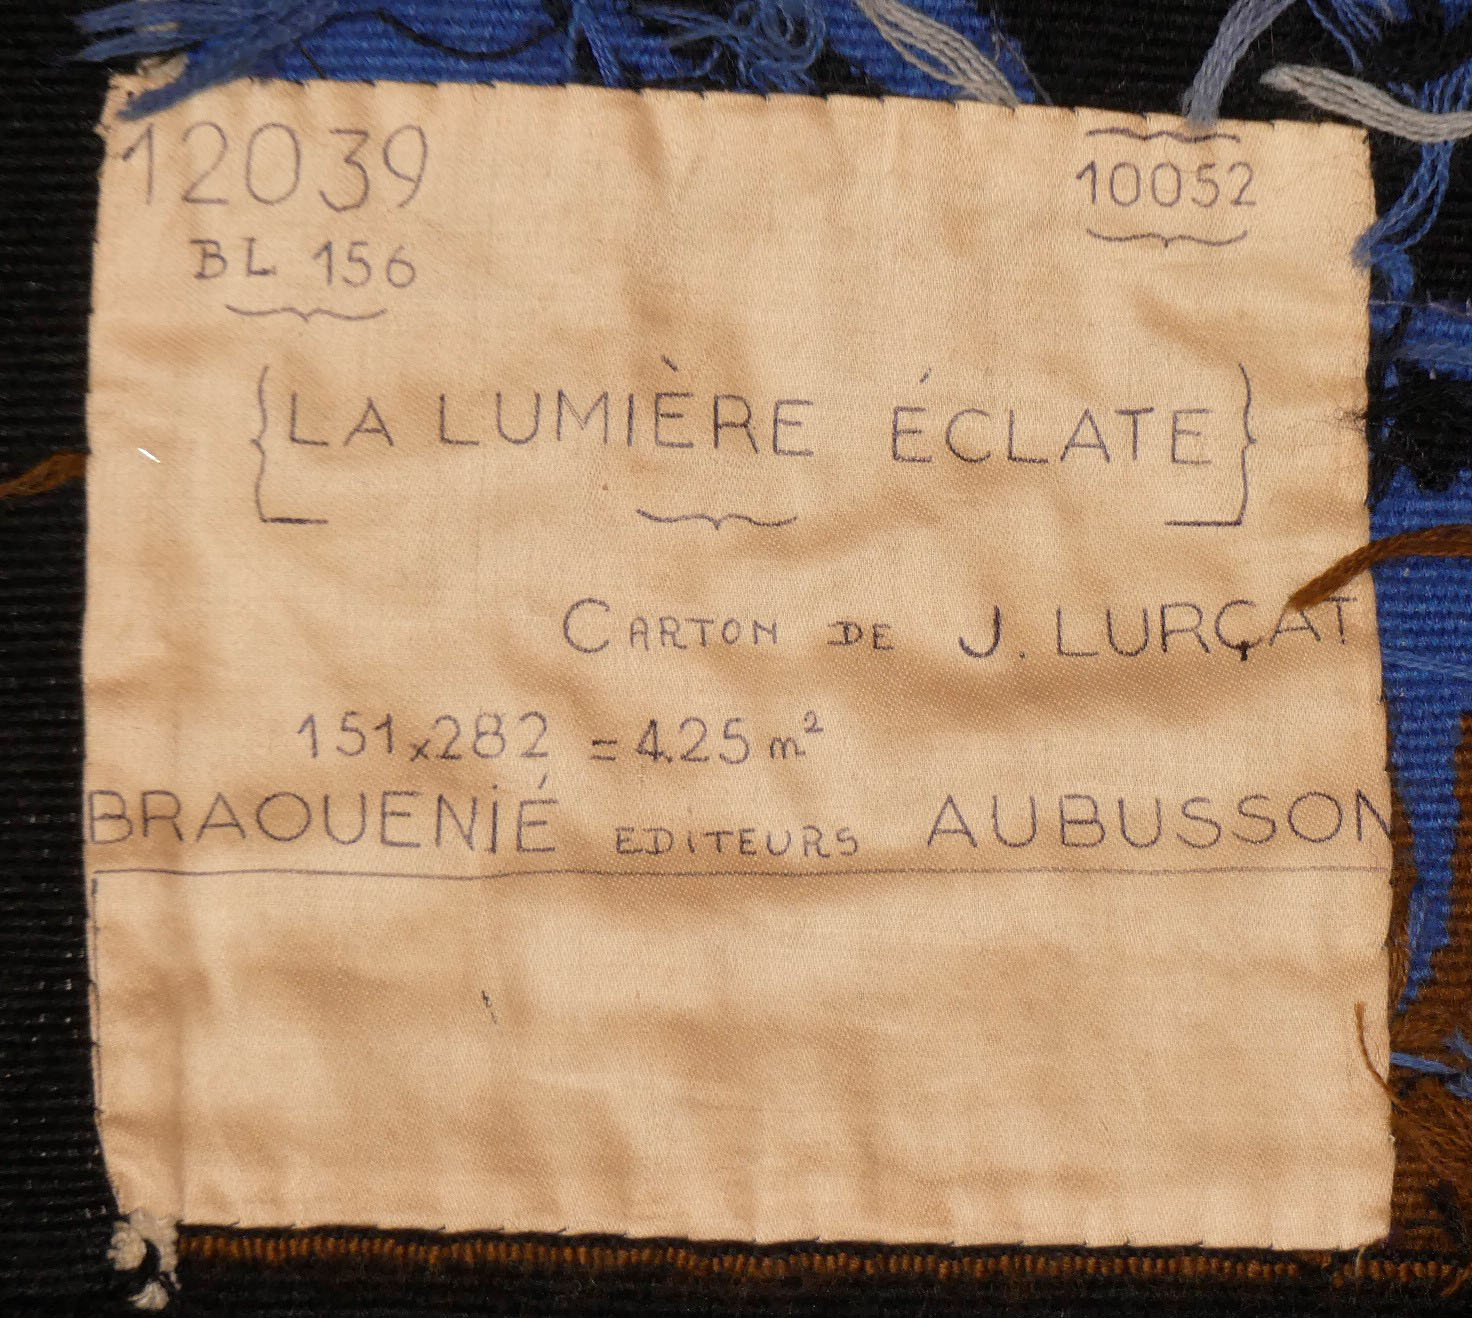 12039
10052
BL 156
{LA LUMIÈRE ÉCLATE}
CARTON DE J. LURÇAT
151x282 = 4.25 m²
BRAOUENIÉ EDITEURS AUBUSSON